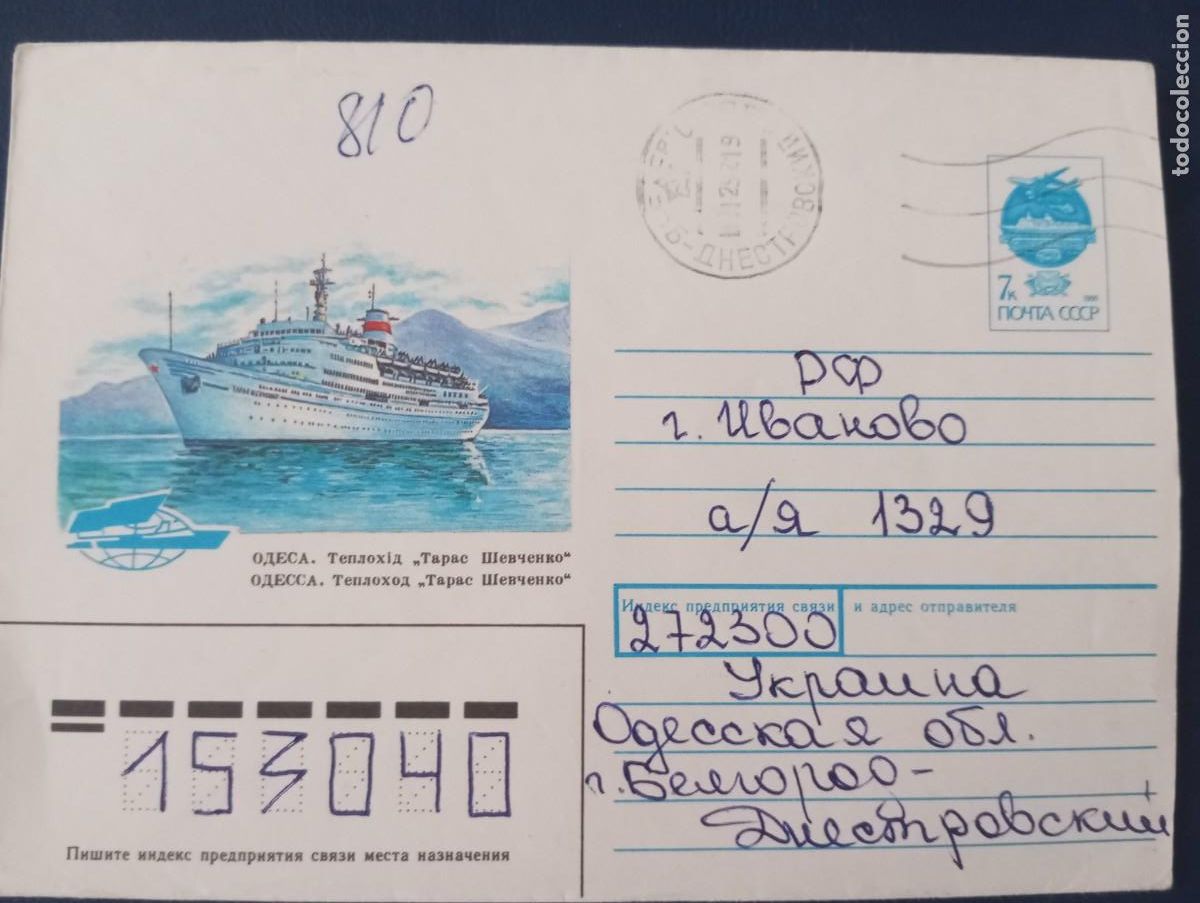 810
7к
ПОЧТА СССР
РФ
г. Иваново
а/я 1329
ОДЕСА. Теплохід „Тарас Шевченко“
ОДЕССА. Теплоход „Тарас Шевченко“
Индекс предприятия связи и адрес отправителя
272300
Украина
Одесская обл.
г. Белгород-
Днестровский
153040
Пишите индекс предприятия связи места назначения
Б-ДНЕСТРОВСКИЙ
todocoleccion